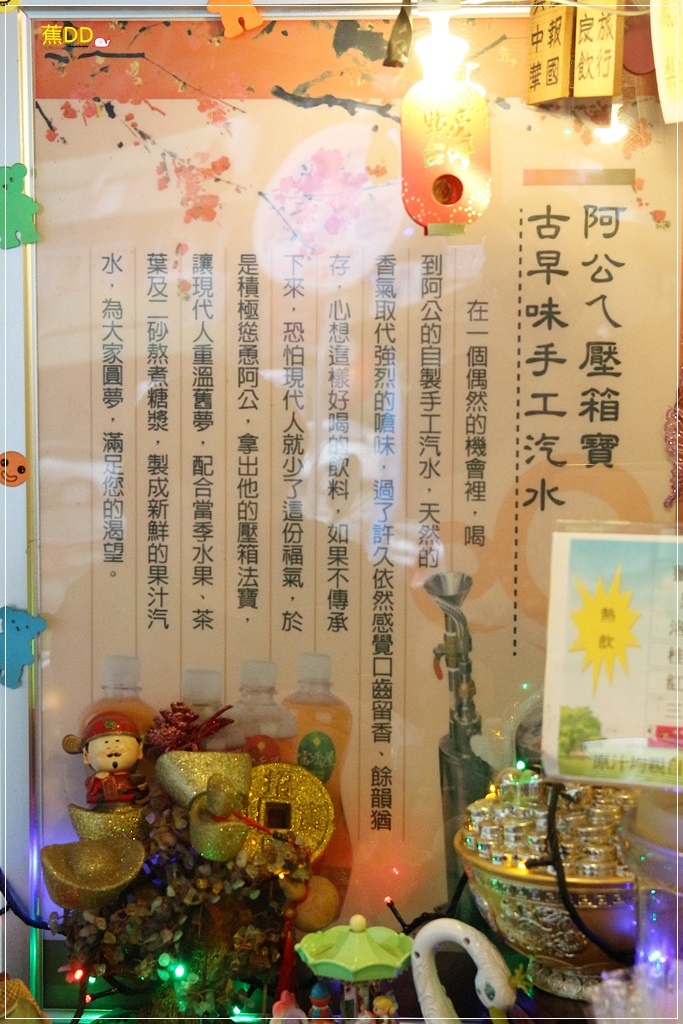 蕉DD
旅行
良飲
報國
中華
阿公ㄟ壓箱寶
古早味手工汽水
在一個偶然的機會裡，喝
到阿公的自製手工汽水，天然的
香氣取代強烈的嗆味，過了許久依然感覺口齒留香、餘韻猶
存，心想這樣好喝的飲料，如果不傳承
下來，恐怕現代人就少了這份福氣，於
是積極慫恿阿公，拿出他的壓箱法寶，
讓現代人重溫舊夢，配合當季水果、茶
葉及二砂熬煮糖漿，製成新鮮的果汁汽
水，為大家圓夢，滿足您的渴望。
熱飲
招